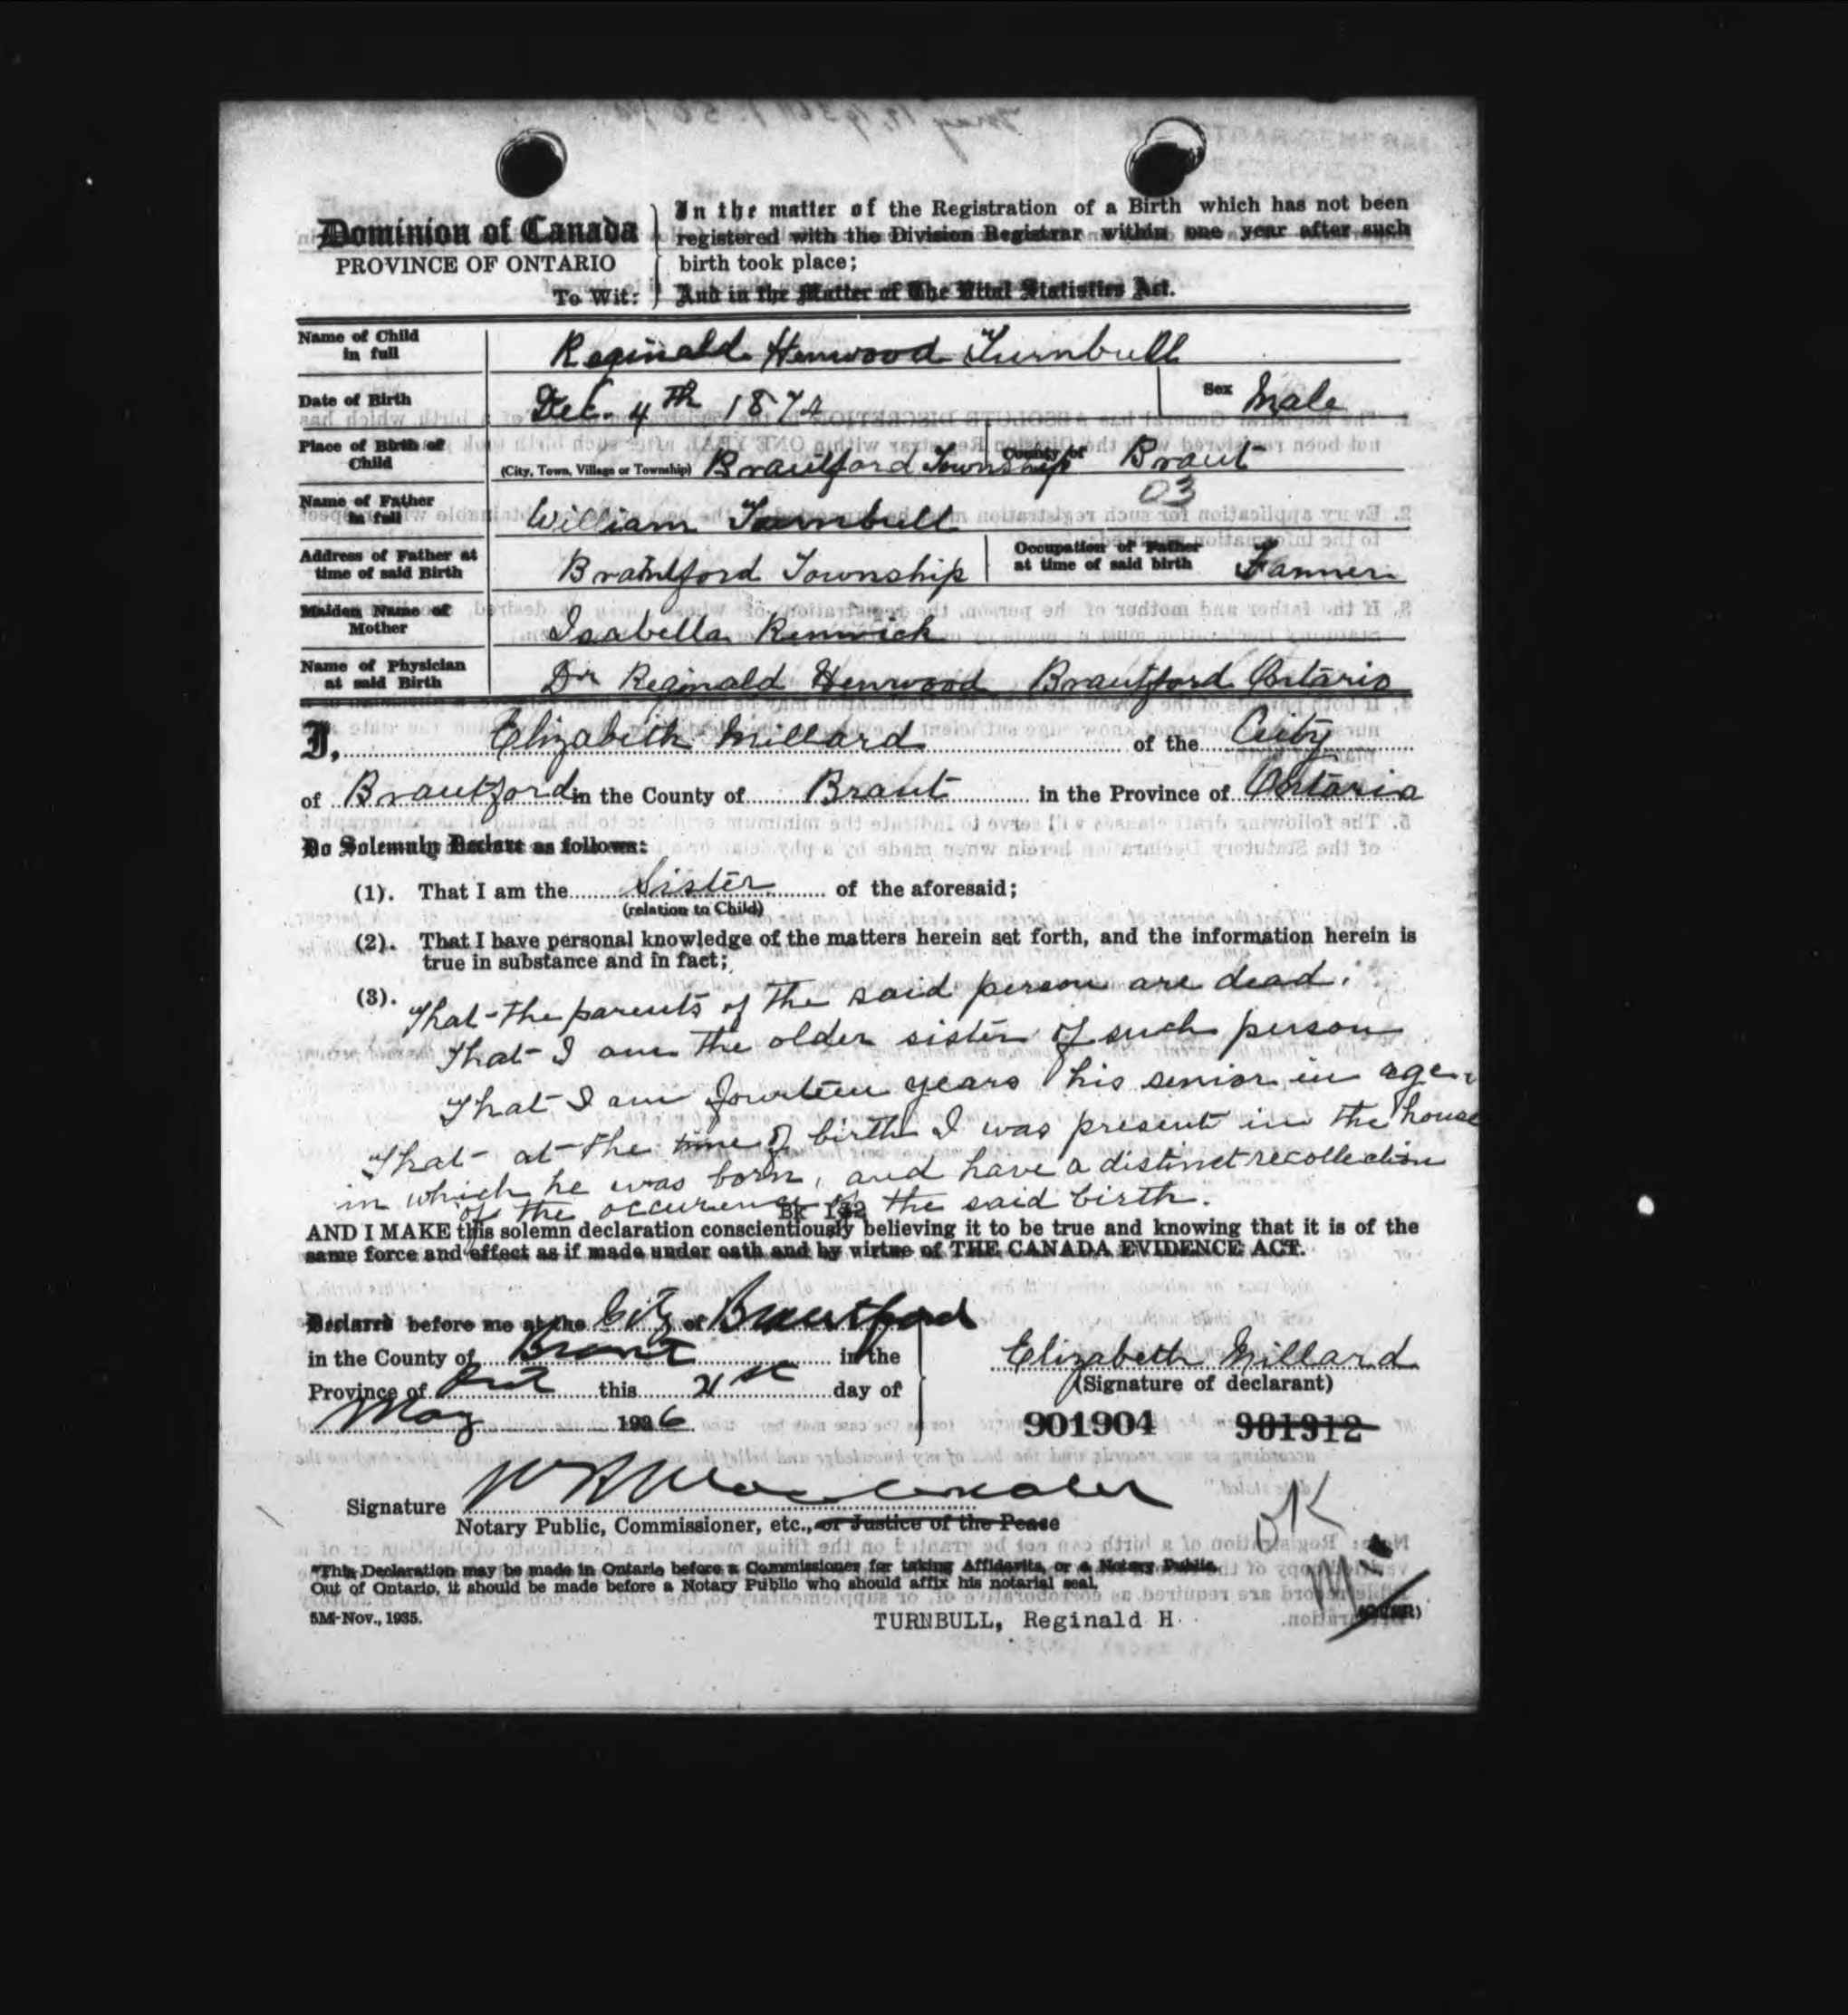 Dominion of Canada
PROVINCE OF ONTARIO
To Wit:
In the matter of the Registration of a Birth which has not been
registered with the Division Registrar within one year after such
birth took place;
And in the Matter of The Vital Statistics Act.
Name of Child in full Reginald Henwood Turnbull
Date of Birth Dec. 4th 1872 Sex Male
Place of Birth of Child (City, Town, Village or Township) Brantford Township County of Brant
03
Name of Father in full William Turnbull
Address of Father at time of said Birth Brantford Township Occupation of Father at time of said birth Farmer
Maiden Name of Mother Isabella Renwick
Name of Physician at said Birth Dr Reginald Henwood Brantford Ontario
I, Elizabeth Millard of the City
of Brantford in the County of Brant in the Province of Ontario
Do Solemnly Declare as follows:
(1). That I am the Sister of the aforesaid;
(relation to Child)
(2). That I have personal knowledge of the matters herein set forth, and the information herein is
true in substance and in fact;
(3). That the parents of the said person are dead.
That I am the older sister of such person
That I am fourteen years his senior in age.
That at the time of birth I was present in the house
in which he was born, and have a distinct recollection
of the occurence of the said birth.
AND I MAKE this solemn declaration conscientiously believing it to be true and knowing that it is of the
same force and effect as if made under oath and by virtue of THE CANADA EVIDENCE ACT.
Declared before me at the City of Brantford
in the County of Brant in the
Province of Ont this 21st day of
May 1936
Elizabeth Millard
(Signature of declarant)
901904 901912
Signature
Notary Public, Commissioner, etc., or Justice of the Peace
OK
*This Declaration may be made in Ontario before a Commissioner for taking Affidavits, or a Notary Public.
Out of Ontario, it should be made before a Notary Public who should affix his notarial seal.
5M-Nov., 1935.
TURNBULL, Reginald H